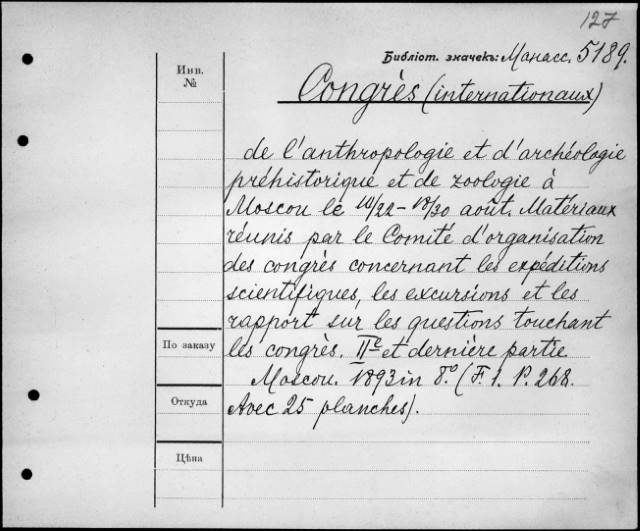 127
Библіот. значекъ: Манасс. 5189.
Инв.
№
Congrès (internationaux)
de l'anthropologie et d'archéologie
préhistorique et de zoologie à
Moscou le 10/22–18/30 août. Matériaux
réunis par le Comité d'organisation
des congrès concernant les expéditions
scientifiques, les excursions et les
rapport sur les questions touchant
По заказу
les congrès. IIe et dernière partie
Moscou. 1893 in 8.º (F. 1. P. 268.
Откуда
Avec 25 planches).
Цѣна